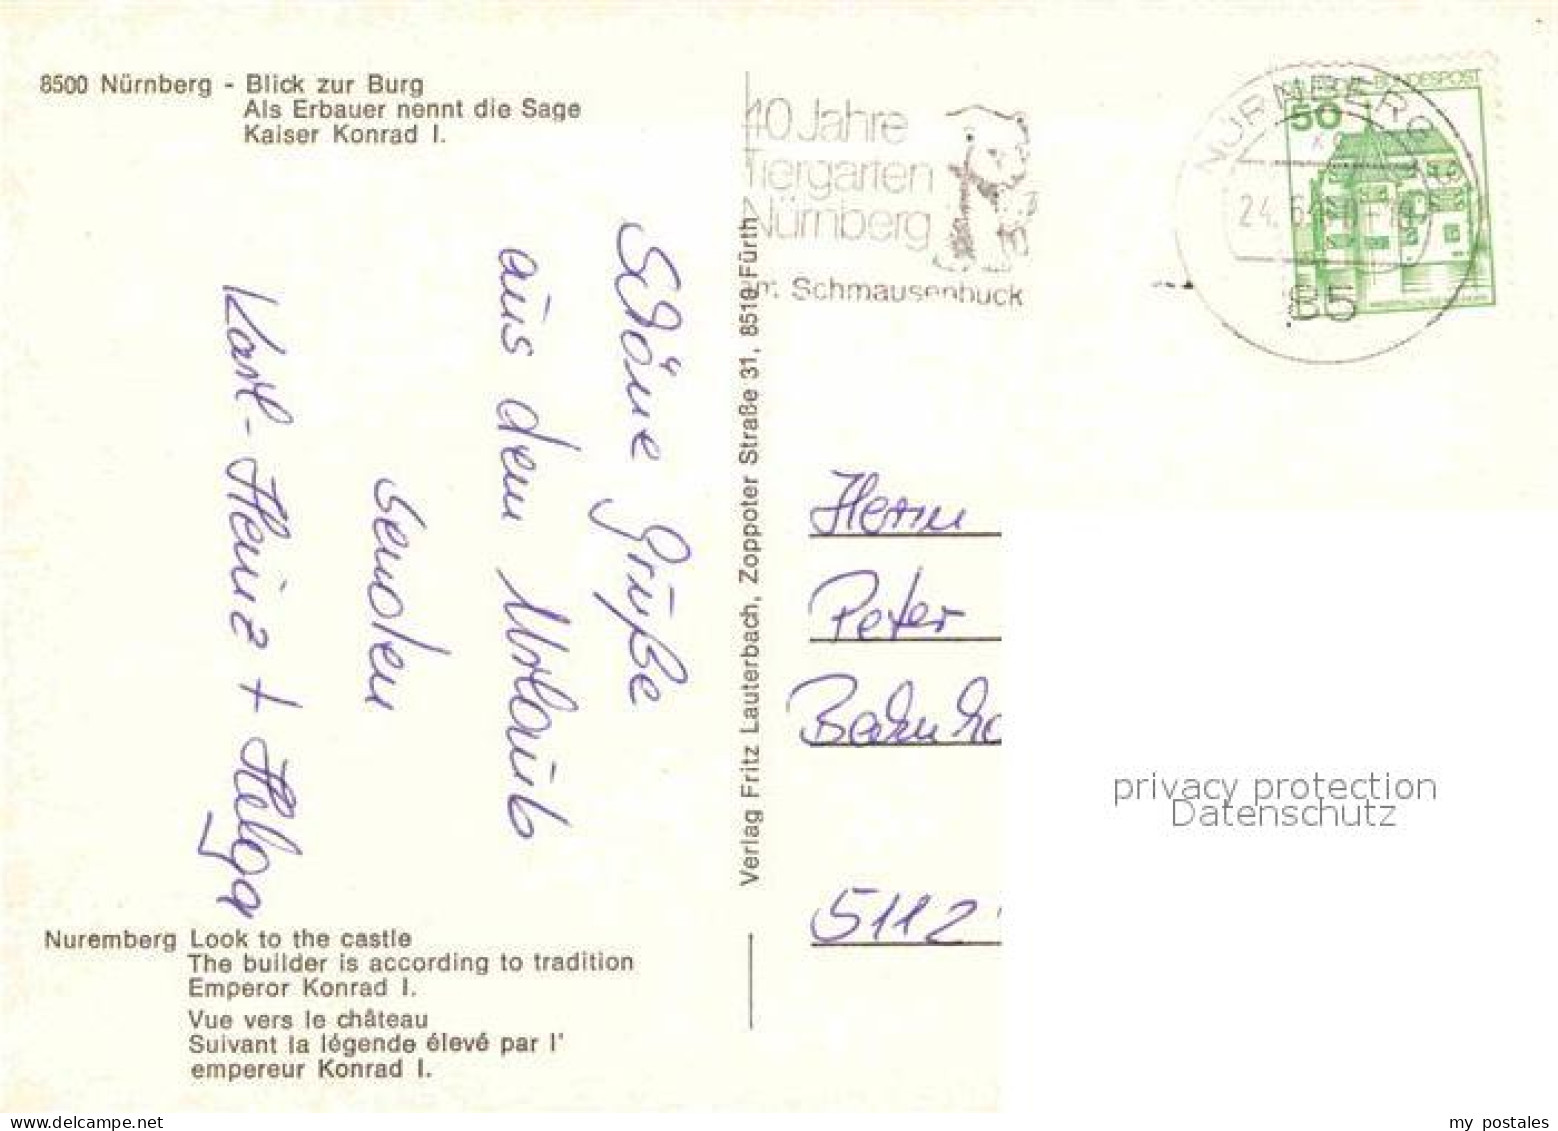 8500 Nürnberg - Blick zur Burg
Als Erbauer nennt die Sage
Kaiser Konrad I.
40 Jahre
Tiergarten
Nürnberg
am Schmausenbuck
NÜRNBERG
24.
85
50
BUNDESPOST
Schöne Grüße
aus dem Urlaub
senden
Karl-Heinz + Helga
Verlag Fritz Lauterbach, Zoppoter Straße 31, 8510 Fürth
Herrn
Peter
5112
privacy protection
Datenschutz
Nuremberg Look to the castle
The builder is according to tradition
Emperor Konrad I.
Vue vers le château
Suivant la légende élevé par l'
empereur Konrad I.
delcampe.net
my_postales